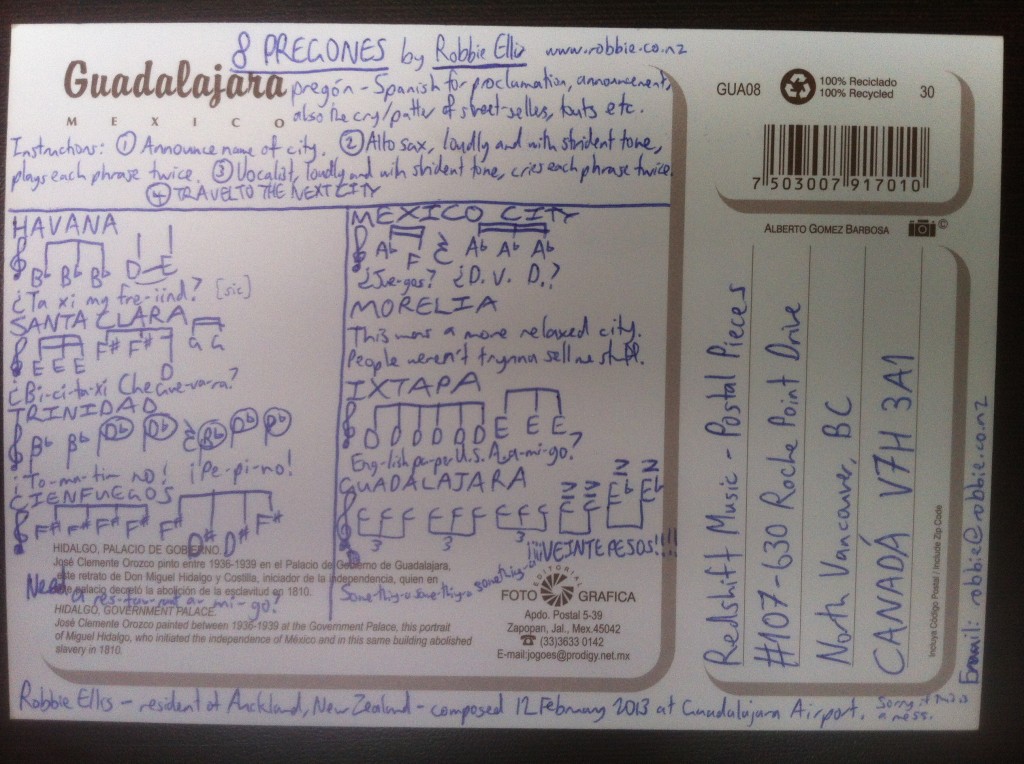 8 PREGONES by Robbie Ellis www.robbie.co.nz
Guadalajara
MEXICO
pregón - Spanish for proclamation, announcement,
also the cry/patter of street-sellers, touts etc.
Instructions: ① Announce name of city. ② Alto sax, loudly and with strident tone,
plays each phrase twice. ③ Vocalist, loudly and with strident tone, cries each phrase twice.
④ TRAVEL TO THE NEXT CITY
HAVANA
B♭ B♭ B♭ D E
¿Ta xi my fre-iind? [sic]
SANTA CLARA
E E E F# F# D G G
¿Bi-ci-ta-xi Che Gue-va-ra?
TRINIDAD
B♭ B♭ D♭ D♭ B♭ D♭ D♭
¡To-ma-tin NO! ¡Pe-pi-no!
CIENFUEGOS
F# F# F# F# F# D# D# F#
Need a res-tau-rant a-mi-go?
MEXICO CITY
A♭ F A♭ A♭ A♭
¿Jue-gos? ¿D. V. D.?
MORELIA
This was a more relaxed city.
People weren't trynna sell me stuff.
IXTAPA
D D D D D D E E E E
Eng-lish pa-pe U.S.A. a-mi-go?
GUADALAJARA
E E E E E E E E E E E E♭ E♭
3 3 3
Some-thing-a some-thing-a something-a
¡¡¡¡VEINTE PESOS!!!!
HIDALGO, PALACIO DE GOBIERNO.
José Clemente Orozco pinto entre 1936-1939 en el Palacio de Gobierno de Guadalajara,
este retrato de Don Miguel Hidalgo y Costilla, iniciador de la independencia, quien en
este palacio decretó la abolición de la esclavitud en 1810.
HIDALGO, GOVERNMENT PALACE.
José Clemente Orozco painted between 1936-1939 at the Government Palace, this portrait
of Miguel Hidalgo, who initiated the independence of México and in this same building abolished
slavery in 1810.
EDITORIAL
FOTO GRAFICA
Apdo. Postal 5-39
Zapopan, Jal., Mex.45042
☎ (33)3633 0142
E-mail:jogoes@prodigy.net.mx
GUA08
100% Reciclado
100% Recycled
30
7 503007 917010
ALBERTO GOMEZ BARBOSA ©
Redshift Music - Postal Pieces
#107-630 Roche Point Drive
North Vancouver, BC
CANADÁ V7H 3A1
Incluya Código Postal / Include Zip Code
Email: robbie@robbie.co.nz
Robbie Ellis - resident of Auckland, New Zealand - composed 12 February 2013 at Guadalajara Airport.
Sorry if this is
a mess.